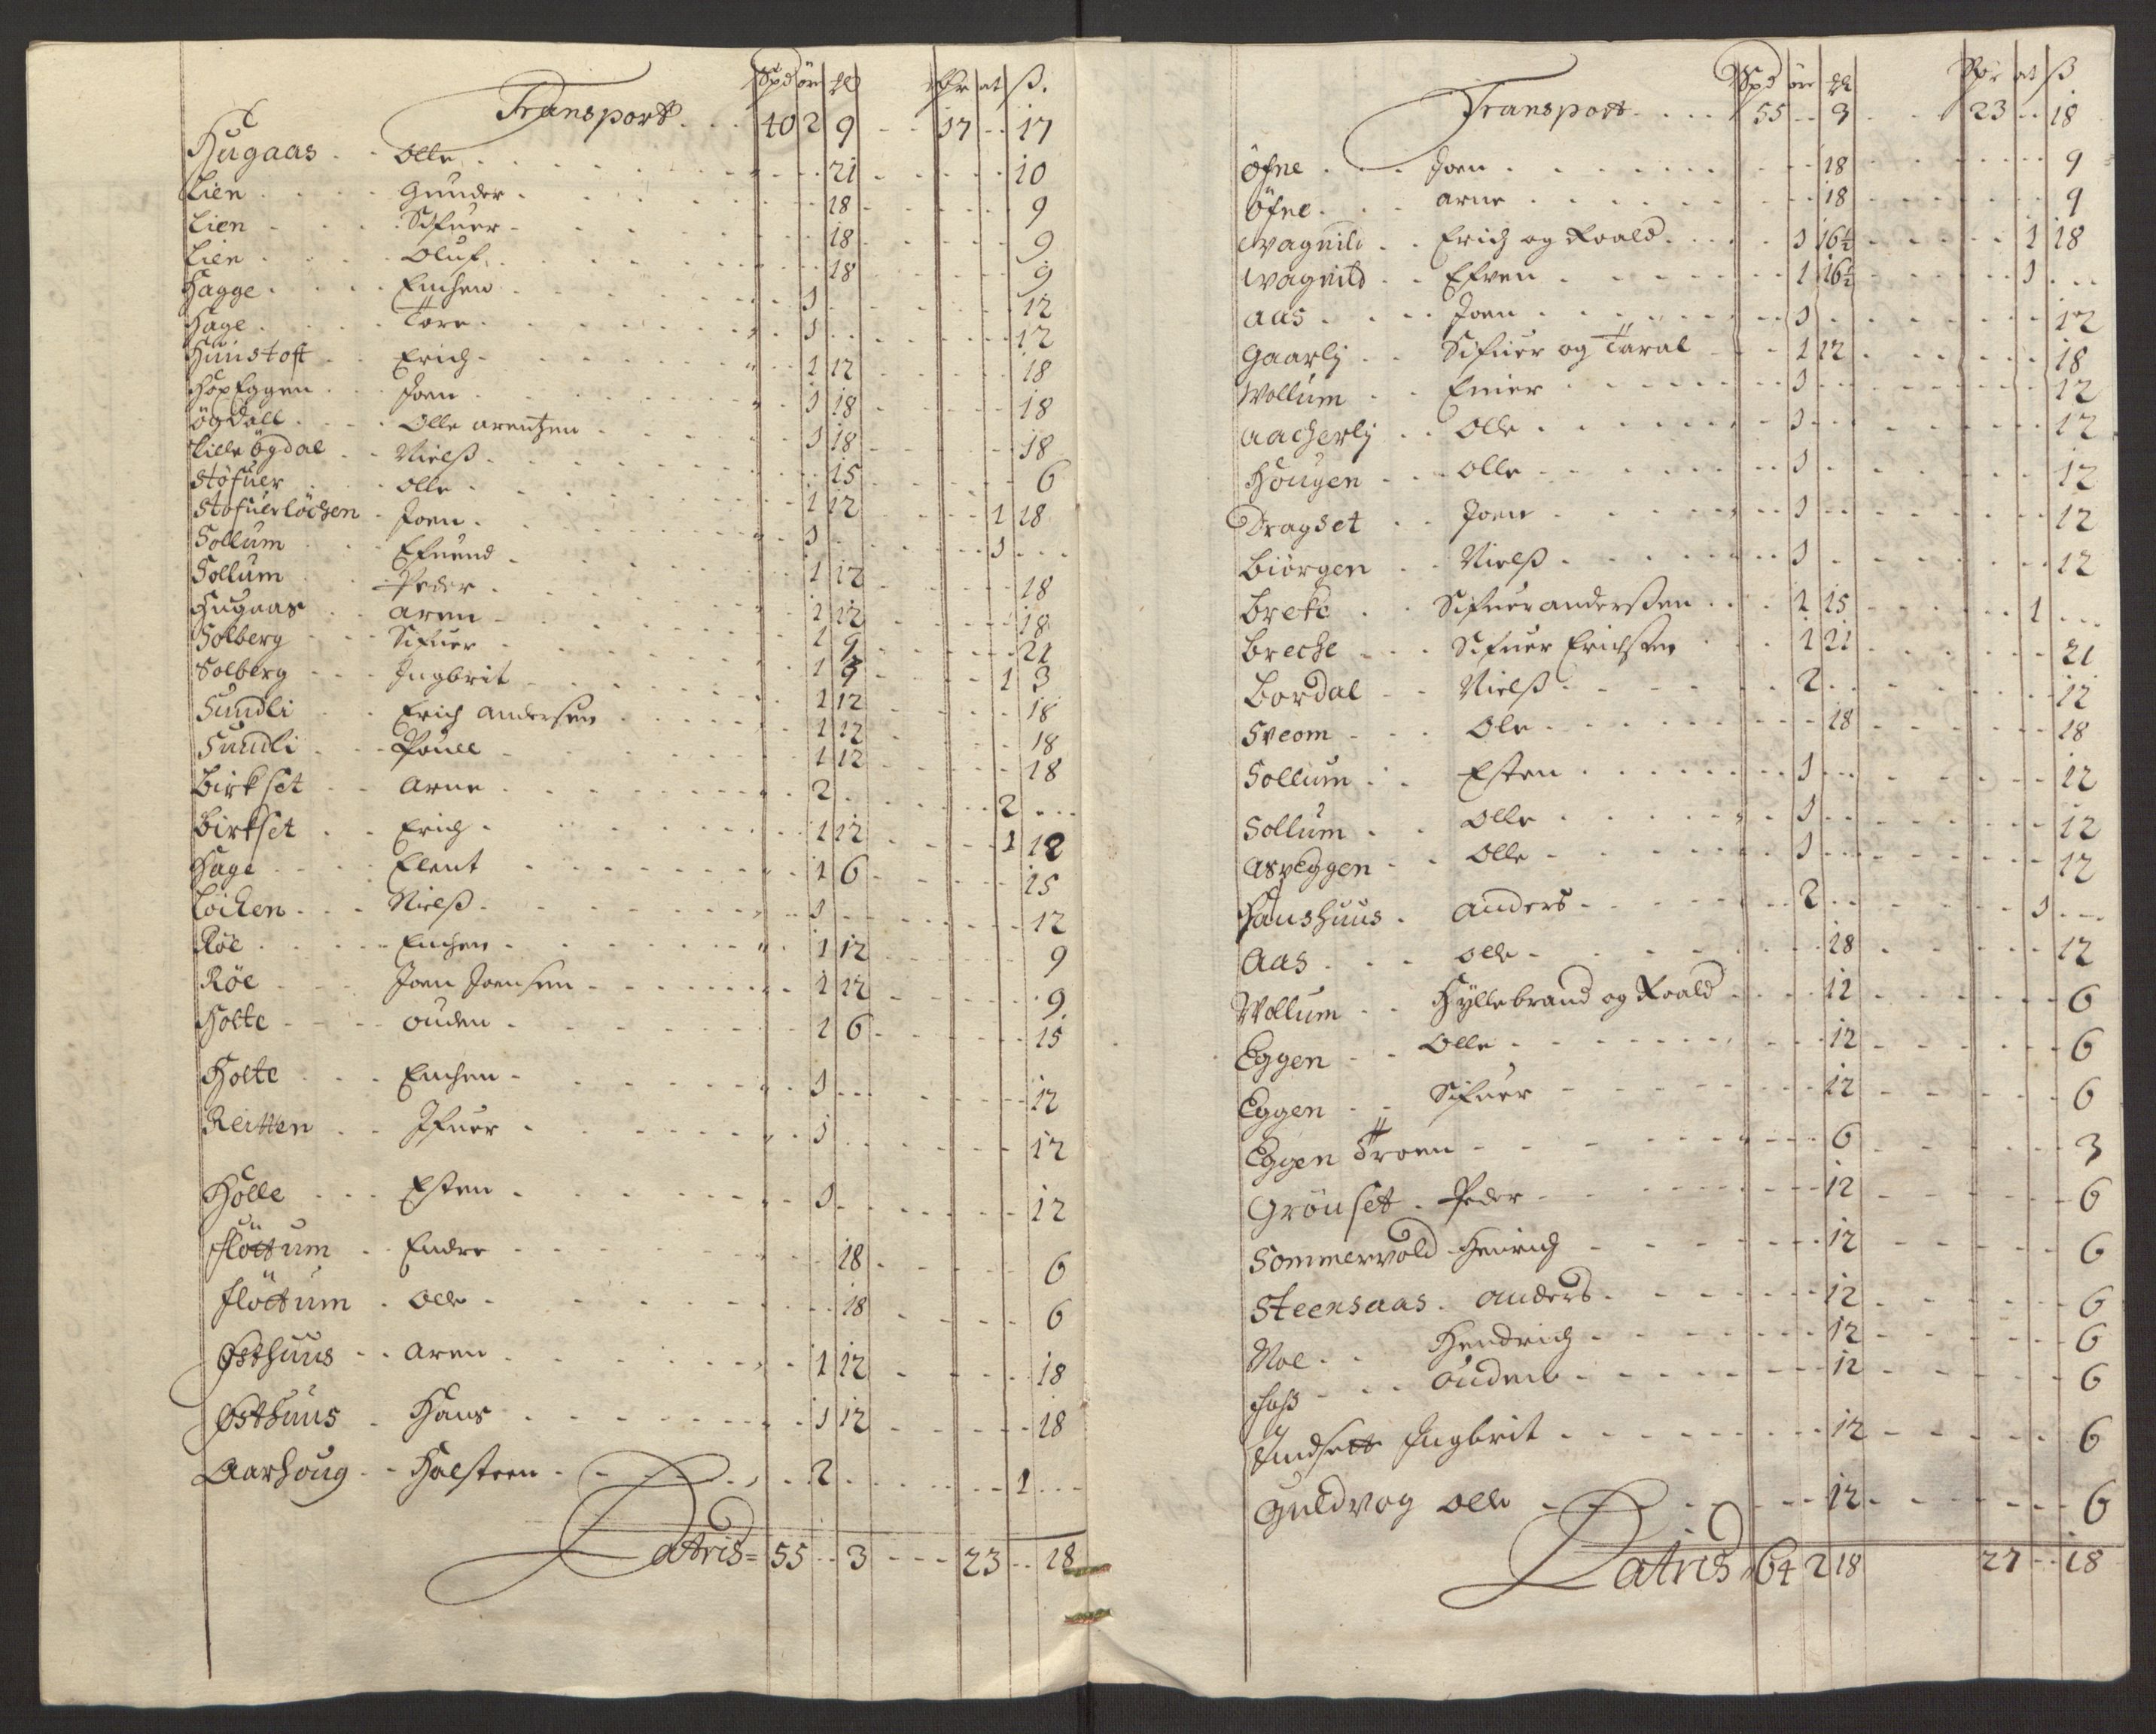 Spd ör ℔ Rdr ort ß.
Transport. . . 40 2 9 - - 17 - - 17
Hugaas . . Olle . . . 21 - - 10
Lien . . . Gunder . . . 18 - - 9
Lien . . . Sifuer . . . 18 - - 9
Lien . . . Oluf . . . 18 - - 9
Hagge . . . Einchen . . . 1 - - 12
Hage . . . Tore . . . 1 - - 12
Hunstoft . . Erich . . . 1 12 - - 18
HopEggen . . Joen . . . 1 18 - - 18
ögdall . . . Olle arentzen . . . 1 18 - - 18
Lille ögdal . . Nielß . . . 15 - - 6
Stöfuer . . Olle . . . 1 12 - - 1 18
Stofuerlöchen . Joen . . . 1 - - 1 - -
Sollum . . Efuend . . . 1 12 - - 18
Sollum . . Peder . . . 1 12 - - 18
Hugaas . . Aren . . . 1 9 - - 21
Solberg . . Sifuer . . . 1 9 - - 1 3
Solberg . . Ingbrit . . . 1 12 - - 18
Sundli . . Erich Andersen . . . 1 12 - - 18
Sundli . . Pouel . . . 1 12 - - 18
Birkset . . Arne . . . 2 - - 2 - -
Birkset . . Erich . . . 1 12 - - 1 12
Hage . . . Elent . . . 1 6 - - 15
Löcken . . . Nielß . . . 1 - - 12
Röe . . . Einchen . . . 1 12 - - 9
Röe . . . Joen Joensen . . . 1 12 - - 9
Holte . . . Ouden . . . 1 6 - - 15
Holte . . . Einchen . . . 1 - - 12
Reitten . . Ifuer . . . 1 - - 12
Holle . . . Esten . . . 1 - - 12
flöttum . . Endre . . . 18 - - 6
flöttum . Olle . . . 18 - - 6
Østhuus . . Aren . . . 1 12 - - 18
Østhuus . Hans . . . 1 12 - - 18
Aarhoug . . Halsteen . . . 2 - - 1 - -
Latris = 55 - - 3 - - - 23 - - 18
Spd ör ℔ Rdr ort ß
Transport . . . 55 - - 3 - - 23 - - 18
Öfne . . . Joen . . . 18 - - 9
Öfne . . . Arne . . . 18 - - 9
Wagnild . . Erich og Roald . . . 1 16½ - - 1 18
Wagnild . . Efven . . . 1 16½ - - 1 - -
Aas . . . Joen . . . 1 - - 12
Gaarlj . . Sifuer og Taral . . 1 12 - - 18
Wollum . . Einer . . . 1 - - 12
Aacherlj . . Olle . . . 1 - - 12
Hougen . . Olle . . . 1 - - 12
Dragset . . Joen . . . 1 - - 12
Biörgen . . Nielß . . . 1 - - 12
Breke . . Sifuer anderßen . . 1 15 - - 1 - -
Breche . . Sifuer Erichsen . . 1 21 - - 21
Bordal . . Nielß . . . 2 - - 12
Sveom . . . Ole . . . 18 - - 18
Sollum . . Esten . . . 1 - - 12
Sollum . . Olle . . . 1 - - 12
Asveggen . . Olle . . . 1 - - 12
Hanshuus . Anders . . . 2 - - 1 - -
Aas . . . Olle . . . 18 - - 12
Wollum . . Hyllebrand og Roald . . 12 - - 6
Eggen . . Olle . . . 12 - - 6
Eggen . . Sifuer . . . 12 - - 6
Eggen Troen . . . 6 - - 3
Grönset . Peder . . . 12 - - 6
Sommervold Henrich . . . 12 - - 6
Steensaas . Anders . . . 12 - - 6
Noe . . Hendrich . . . 12 - - 6
foss . . . Ouden . . . 12 - - 6
Indsett Ingbrit . . . 12 - - 6
Guldvog Olle . . . 12 - - 6
Latris 64 2 18 27 - - 18